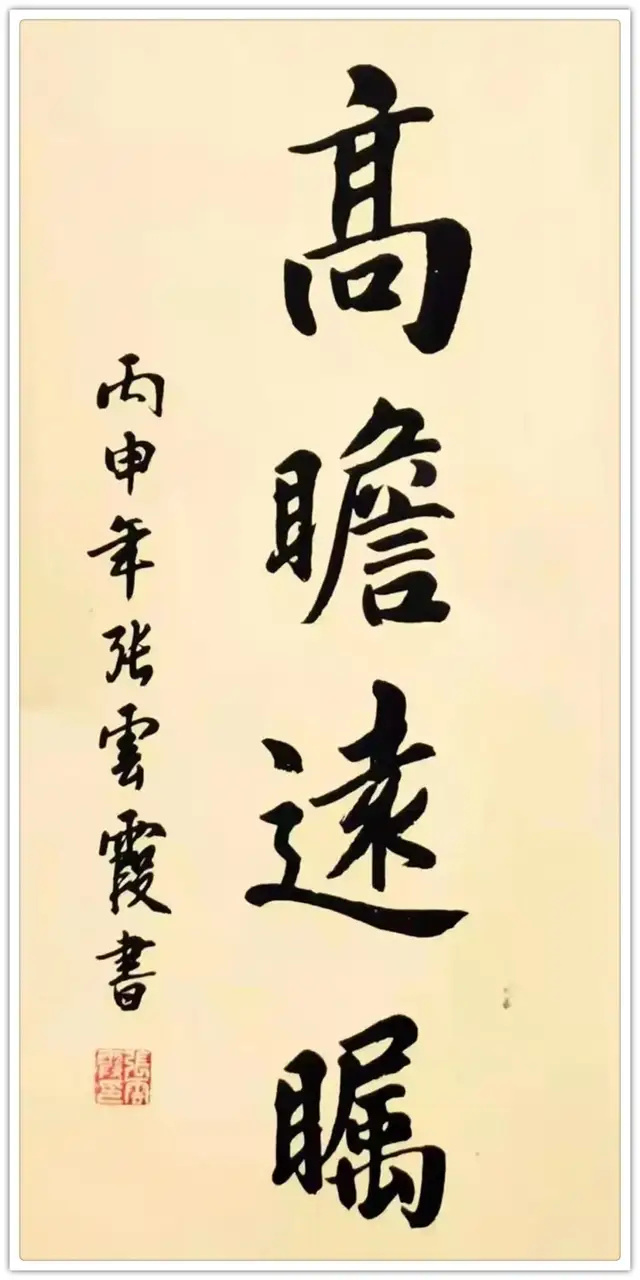 髙瞻遠瞩
丙申年张雲霞書
張雲霞印